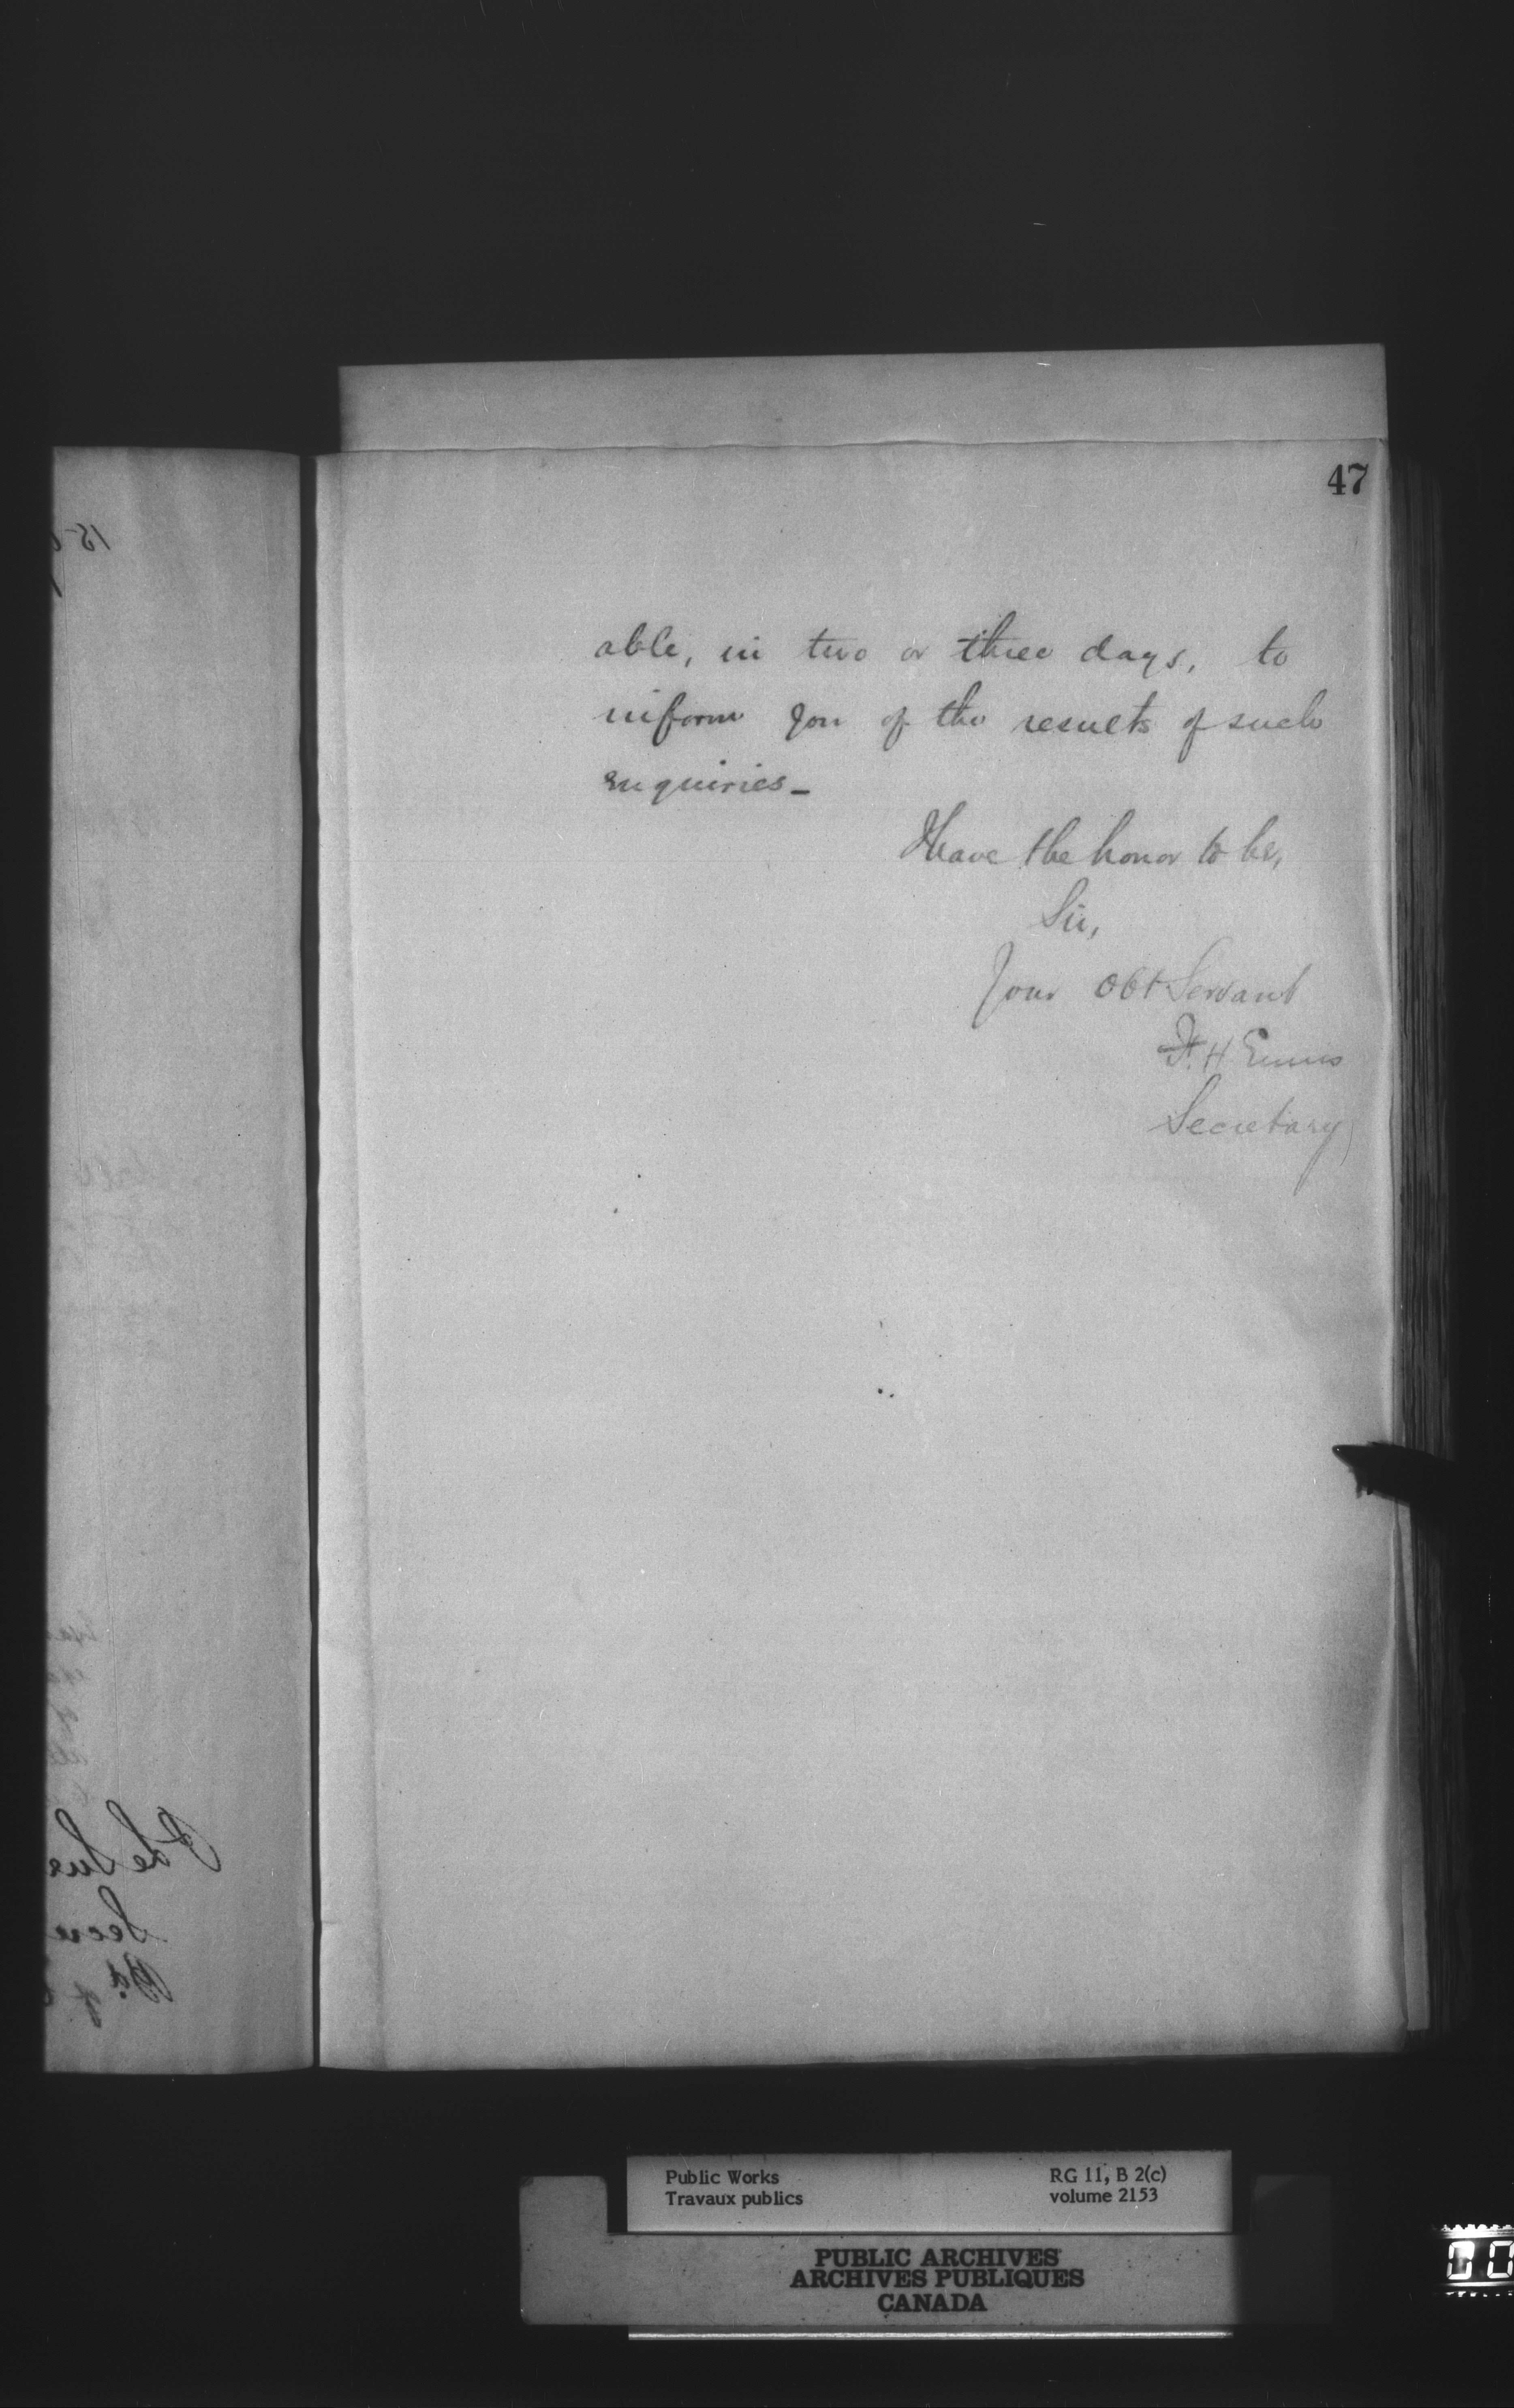 47
able, in two or three days, to
inform you of the results of such
enquiries_
I have the honor to be,
Sir,
Your Obt Servant
F. H. Ennis
Secretary
Public Works
Travaux publics
RG 11, B 2(c)
volume 2153
PUBLIC ARCHIVES
ARCHIVES PUBLIQUES
CANADA